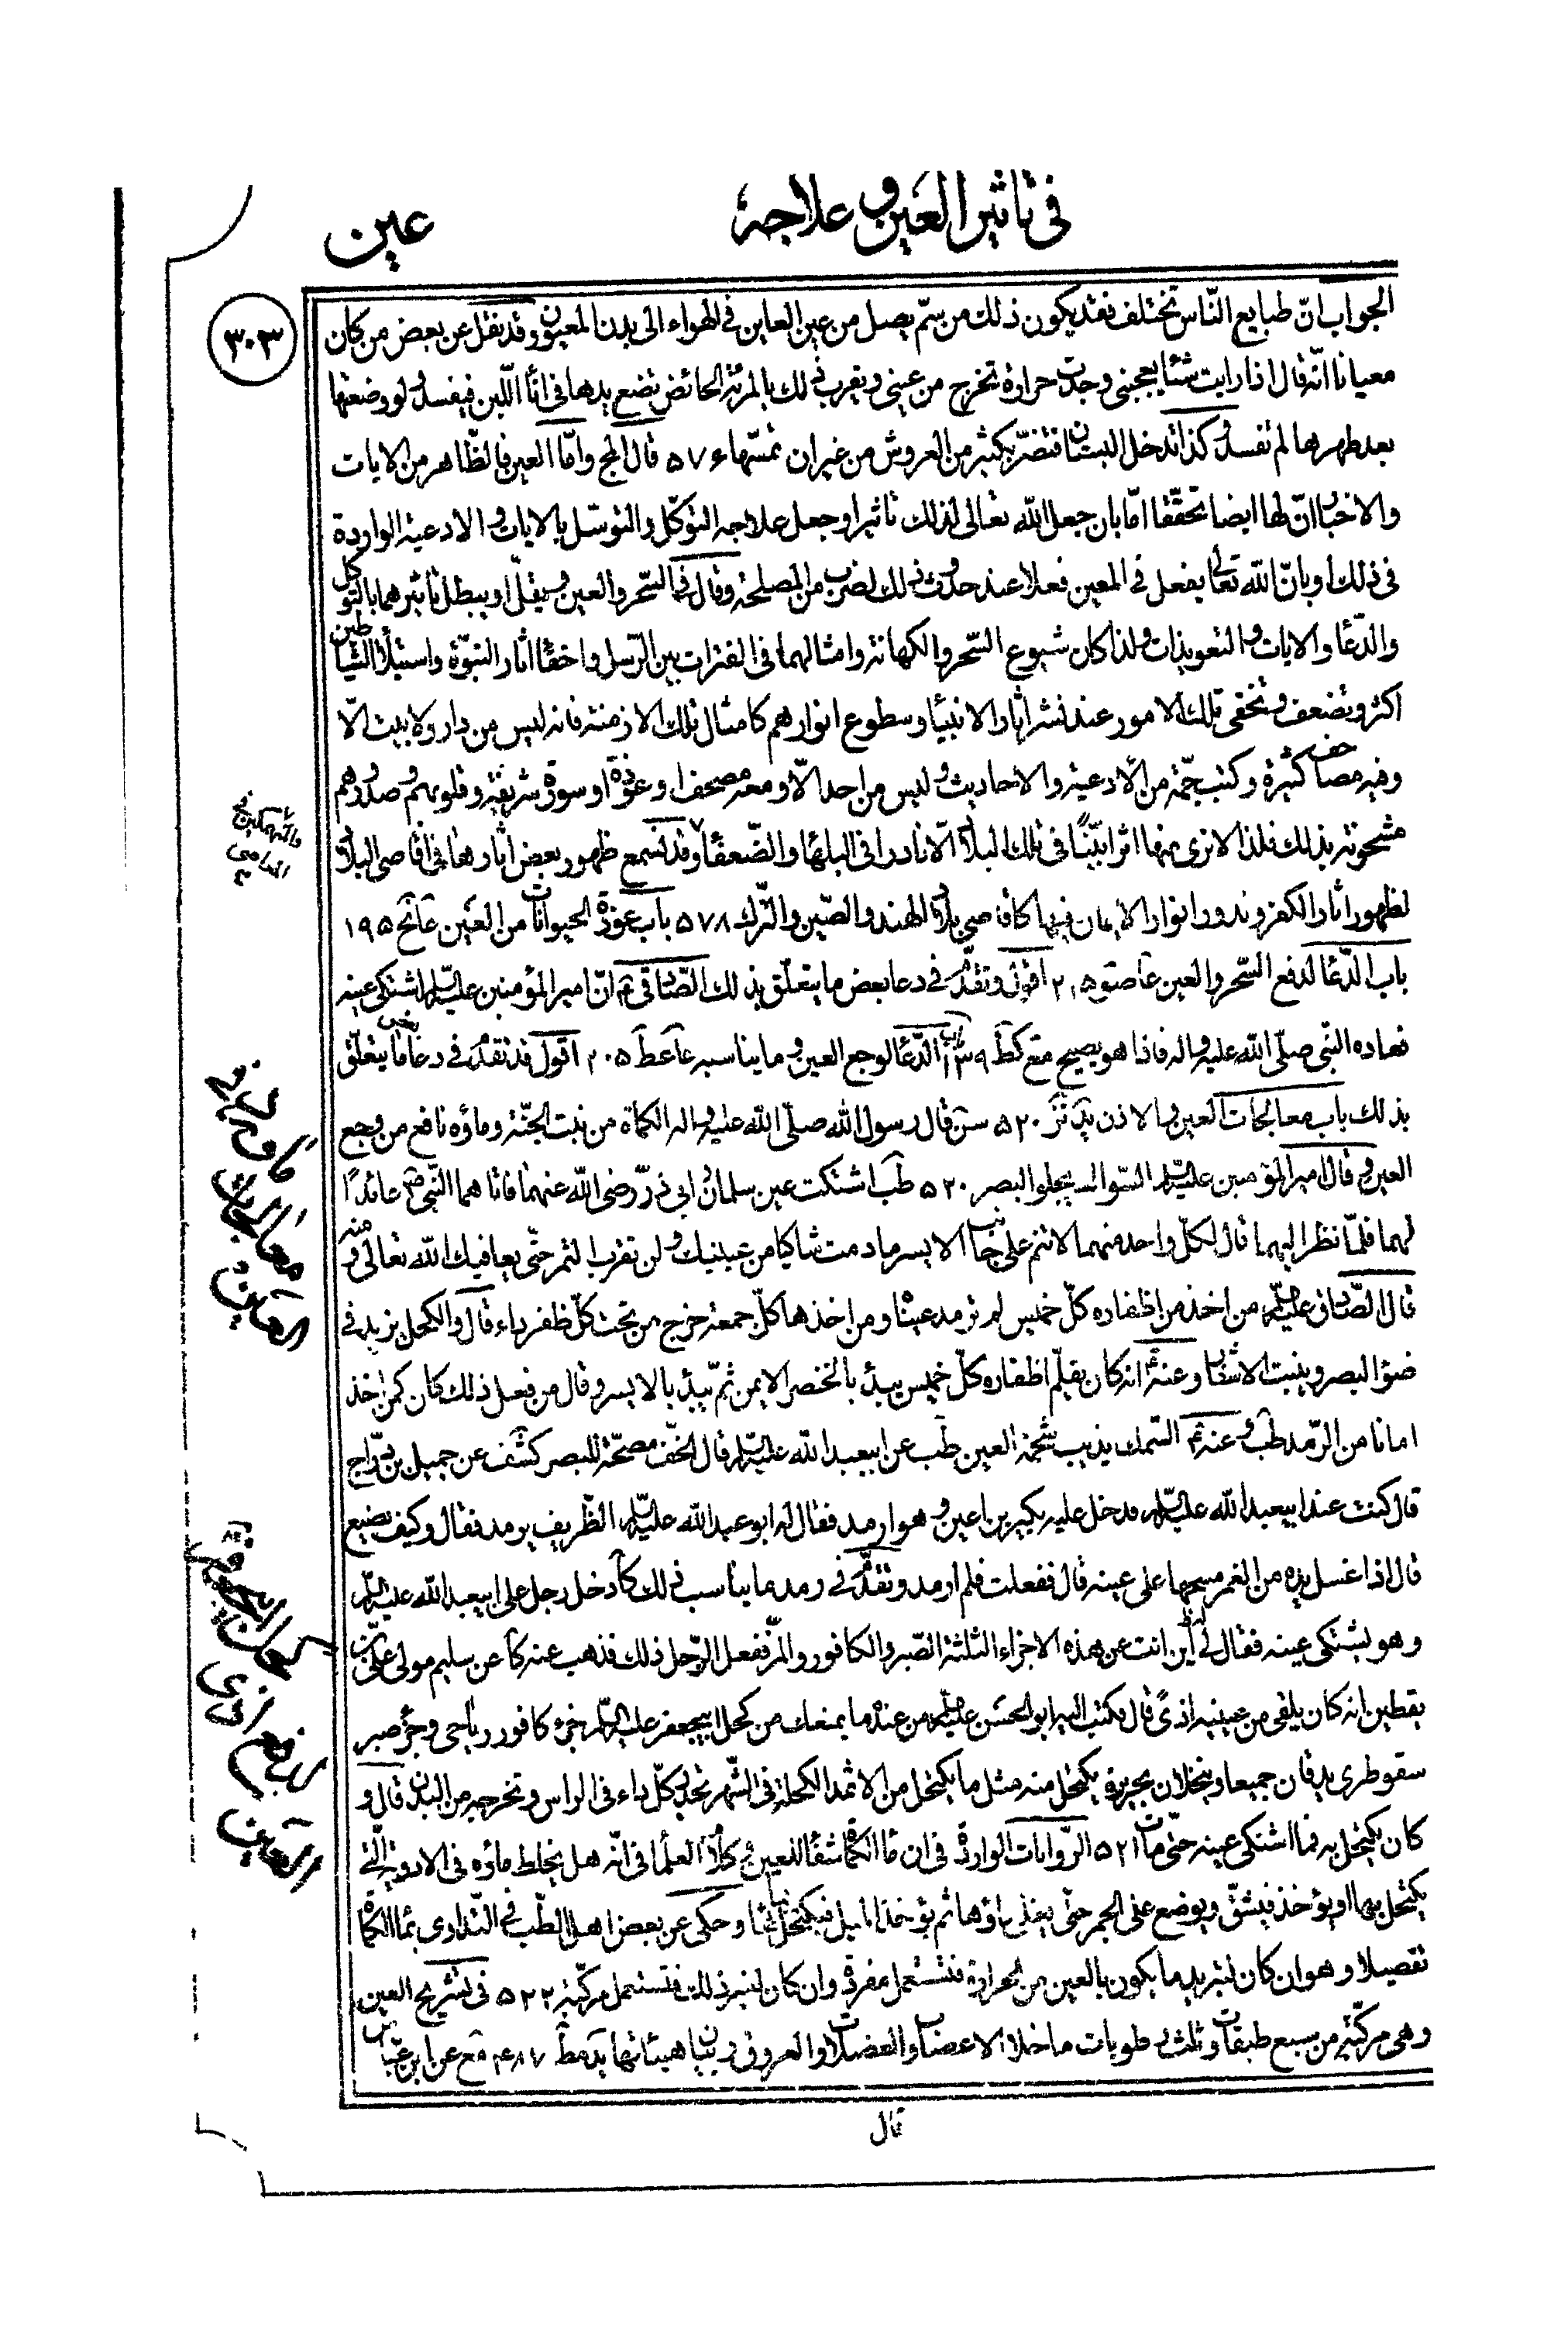 في تاثير العين و علاجه
عين
٣٠٣
الجواب انّ طبايع النّاس تختلف فقد يكون ذلك من سمّ يصل من عين العاين في الهواء الى بدن المعيون وقد نقل عن بعض من كان
معيانا انّه قال اذا رايت شيئا يعجبني وجدت حرارة تخرج من عيني ويقرب ذلك بالمرئة الحائض تضع يدها في اناء اللّبن فيفسد ولو وضعتها
بعد طهرها لم تفسد وكذا تدخل البستان فتضرّ بكثير من العروش من غير ان تمسّها ء ٥٧٦ قال المج وامّا العين فالظّاهر من الايات
والاخبار انّ لها ايضا تحقّقا امّا بان جعل اللّه تعالى لذلك تاثيرا وجعل علاجه التوكّل والتوسّل بالايات و الادعية الواردة
في ذلك او بانّ اللّه تعالى يفعل في المعين فعلا عند حدوث ذلك لضرب من المصلحة وقال في السّحر والعين و يقلّ او يبطل تاثيرهما بالتوكل
والدّعاء والايات و التعويذات ولذا كان شيوع السّحر والكهانة وامثالهما في الفترات بين الرّسل واخفاء اثار النبوّة واستيلاء الشياطين
اكثر وتضعف و تخفى تلك الامور عند نشر اثار الانبياء وسطوع انوارهم كامثال تلك الازمنة فانه ليس من دار ولا بيت الّا
وفيه مصاحف كثيرة وكتب جمّة من الادعية والاحاديث و ليس من احد الّا ومعه مصحف او عوذة او سورة شريفة و قلوبهم و صدورهم
مشحونة بذلك فلذا لا نرى منها اثرا بيّنا في تلك البلاد الّا نادرا في البلهاء والضّعفاء وقد نسمع ظهور بعض اثارها في اقاصي البلاد
لظهور اثار الكفر وندور انوار الايمان فيها كاقاصي بلاد الهند والصّين والتّرك ٥٧٨ باب عوذة الحيوانات من العين عا نح ١٩٥
باب الدّعاء لدفع السّحر والعين عا صو ٢١٥ اقول وتقدّم في دعا بعض ما يتعلّق بذلك الصّادق ع انّ امير المؤمنين عليه السلم اشتكى عينه
فعاده النّبي صلّى اللّه عليه واله فاذا هو يصيح مع كط ١٣٩ باب الدّعاء لوجع العين و ما يناسبه عا عط ٢٠٥ اقول قد تقدّم في دعا ما يتعلّق
بذلك باب معالجات العين و الاذن يد نز ٥٢٠ سن قال رسول اللّه صلّى اللّه عليه واله الكماة من نبت الجنّة وماؤه نافع من وجع
العين و قال امير المؤمنين عليه السلم السّواك يجلو البصر ٥٢٠ طب اشتكت عين سلمان و ابي ذرّ رضي اللّه عنهما فاتاهما النّبي ص عائدا
لهما فلمّا نظر اليهما قال لكلّ واحد منهما لا تنم على جانب الايسر ما دمت شاكيا من عينيك و لن تقرب التمر حتّى يعافيك اللّه تعالى منه و
قال الصّادق عليه السلم من اخذ من اظفاره كلّ خميس لم ترمد عيناه ومن اخذها كلّ جمعة خرج من تحت كلّ ظفر داء قال والكحل يزيد في
ضوء البصر وينبت الاشفار وعنه انه كان يقلّم اظفاره كلّ خميس يبدء بالخنصر الايمن ثمّ يبدء بالايسر وقال من فعل ذلك كان كمن اخذ
امانا من الرّمد طب و عنه ع السّمك يذيب شحمة العين طب عن ابيعبد اللّه عليه السلم قال الخفّ مصحّة للبصر كشف عن جميل بن درّاج
قال كنت عند ابيعبد اللّه عليه السلم فدخل عليه بكير بن اعين و هو ارمد فقال له ابو عبد اللّه عليه السلم الظّريف يرمد فقال وكيف يصنع
قال اذا غسل يده من الغمر مسحها على عينه قال ففعلت فلم ارمد وتقدّم في رمد ما يناسب ذلك كا دخل رجل على ابيعبد اللّه عليه السلم
وهو يشتكي عينه فقال له اين انت عن هذه الاجزاء الثلثة الصّبر والكافور والمرّ ففعل الرّجل ذلك فذهب عنه كا عن سليم مولى عليّ بن
يقطين انه كان يلقى من عينيه اذى قال فكتب اليه ابو الحسن عليه السلم من عنده ما يمنعك من كحل ابيجعفر عليه السلم جزء كافور رياحي وجزء صبر
سقوطري يدقان جميعا وينخلان بحريرة يكتحل منه مثل ما يكتحل من الاثمد الكحلة في الشّهر تحدر كلّ داء في الراس وتخرجه من البدن قال و
كان يكتحل به فما اشتكى عينه حتّى مات ٥٢١ الرّوايات الواردة في ان ماء الكماة شفاء للعين و كلام العلماء في انّه هل يخلط ماؤه في الادوية الّتي
يكتحل بها او يؤخذ فيشقّ ويوضع على الجمر حتّى يغلي ماؤها ثم يؤخذ الميل فيكتحل بمائها و حكى عن بعض اهل الطّب في التّداوي بماء الكماة
تفصيلا وهو ان كان لتبريد ما يكون بالعين من الحرارة فتستعمل مفردة وان كان لغير ذلك فتستعمل مركّبة ٥٢٢ في تشريح العين
وهي مركّبة من سبع طبقات وثلث رطوبات ما خلا الاعصاب والعضلات والعروق وبيان هيئاتها يد مط ٤٨٧ مع عن ابن عبّاس
قال
كلام في
معالجات
العين
كحل ابيجعفر ع
العين